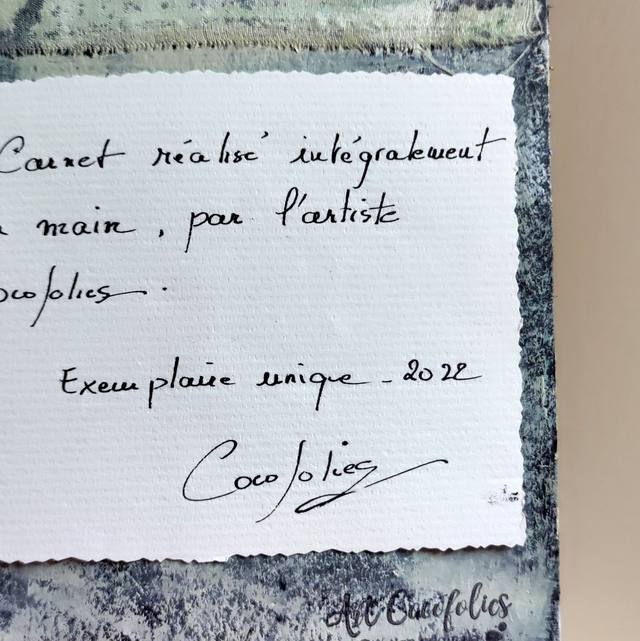 Carnet réalisé intégralement
main, par l'artiste
ocofolies.
Exemplaire unique - 2022
Cocofolies
Art Cocofolies